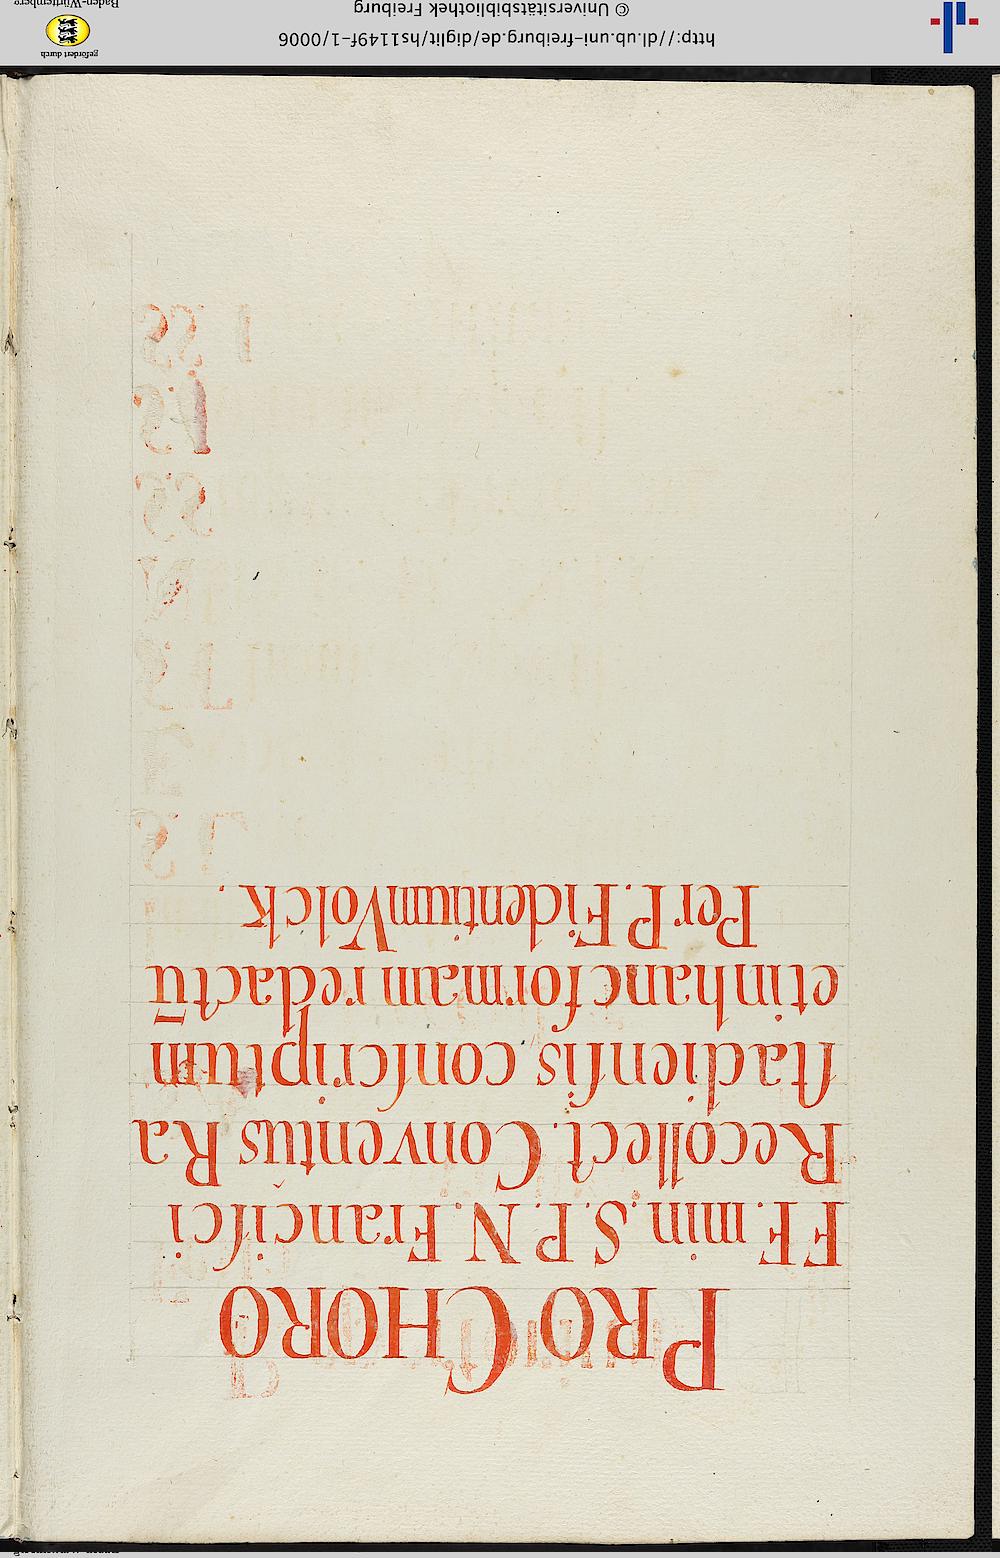 PRO CHORO
FF. min. S. P. N. Franciſci
Recollect. Conventus Ra
ſtadienſis conſcriptum
et in hanc formam redactū
Per P. Fidentium Volck.
http://dl.ub.uni-freiburg.de/diglit/hs1149f-1/0006
© Universitätsbibliothek Freiburg
gefördert durch
Baden-Württemberg